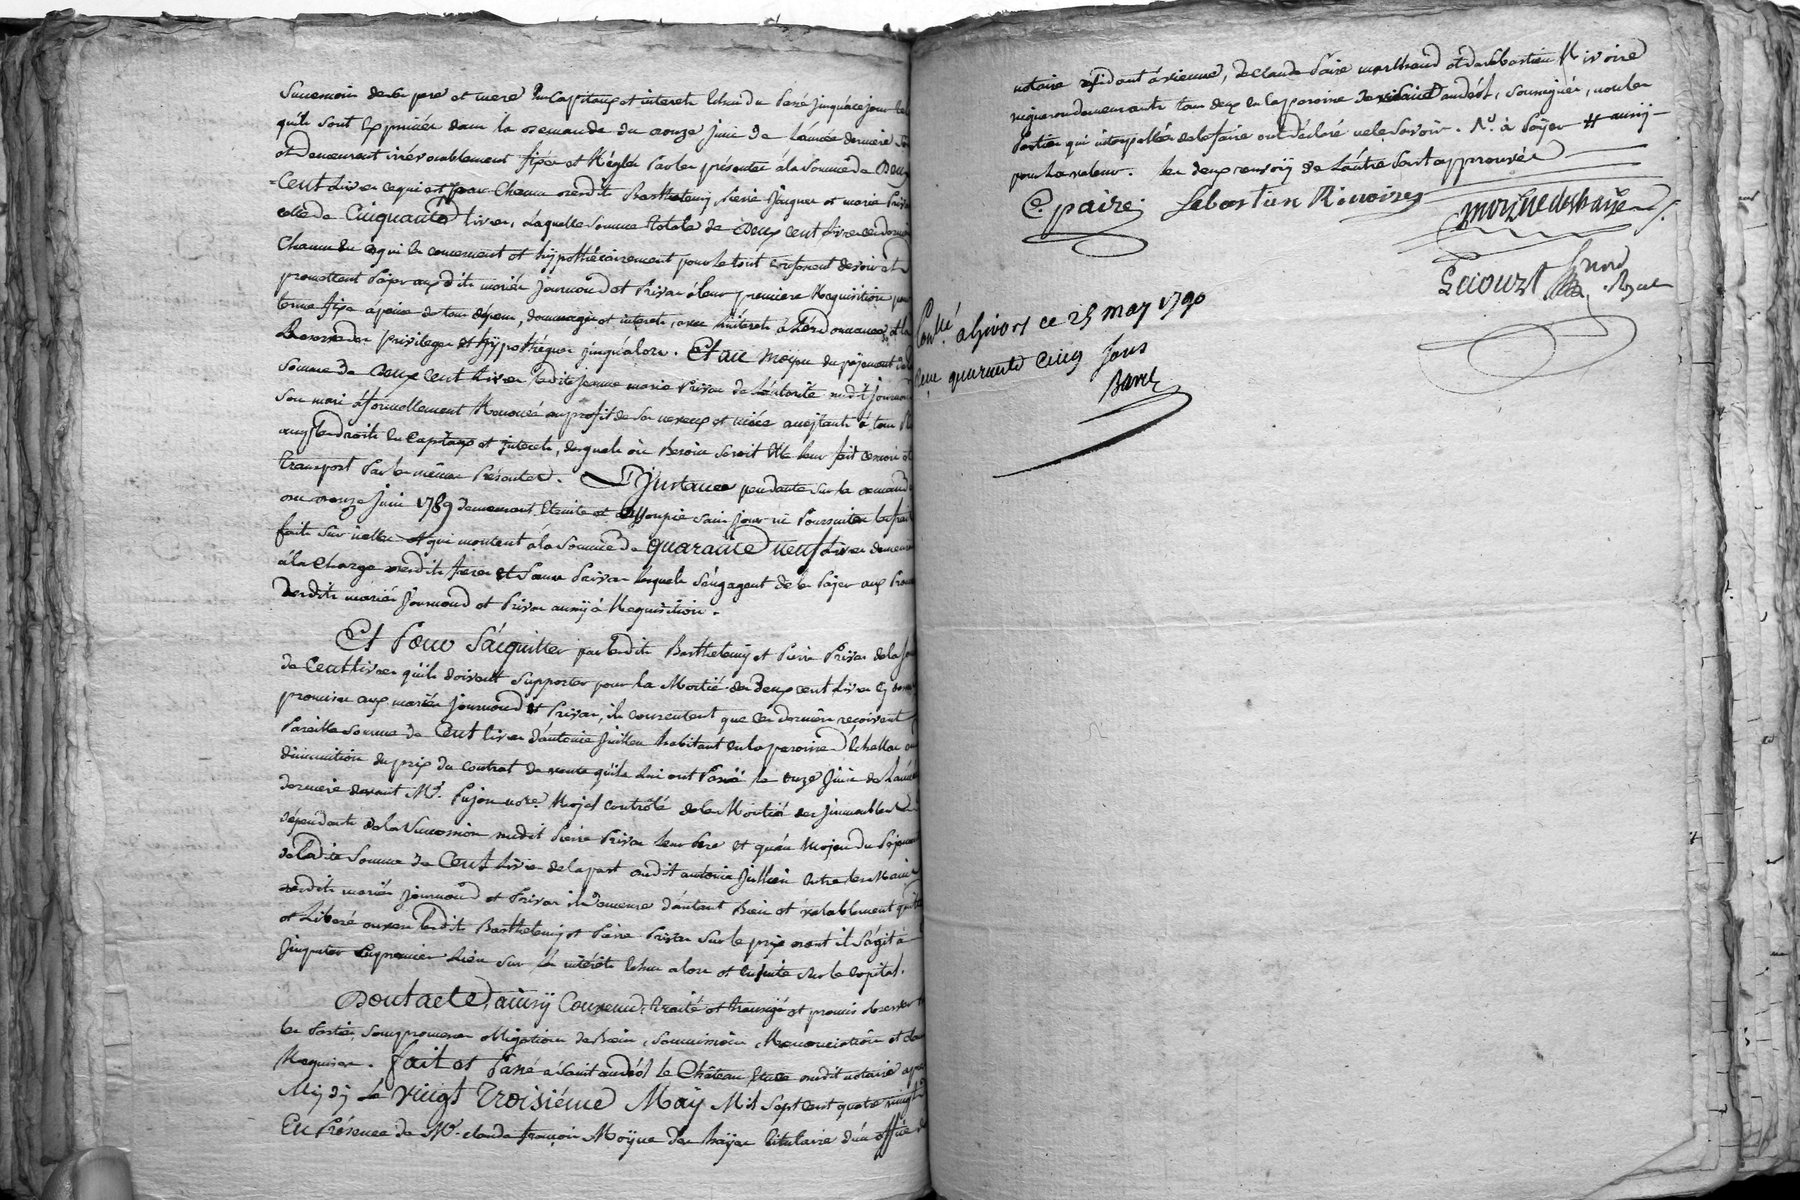 Succession de leur pere et mere en Capitaux et interets Echus du Passé jusqu'a ce jour
qu'ils sont Exprimés dans la demande du onze juin de l'année derniere
et demeurent irrévocablement fixés et Réglés Par les présentes a la Somme de Deux
Cent Livres ce qui est pour Chacun desdits Barthelemy, Pierre Jacques et marie Privas
celle de Cinquante livres, Laquelle Somme totale de Deux Cent Livres ces derniers
Chacun en ce qui les concernent et hypothécairement pour le tout confessent devoir et
promettent Payer auxdits mariés Journoud et Privas a leur premiere Requisition pour
terme fixe a peine de tous dépens, dommages et interets, avec l'interets a l'ordonnance et la
Reserve des privileges et hypothéques jusqu'alors. Et au moyen du payement de la
Somme de Deux Cent Livres ladite Jeanne marie Privas de l'autorité dudit Journoud
Son mari a formellement Renoncé au profit de Ses neveux et niéce acceptants a tous
autres droits en Capitaux et interets, desquels où Besoin Seroit Elle leur fait cession et
transport Par les mêmes Présentes. L'Instance pendante Sur la demande
du onze juin 1789 demeurent Eteinte et assoupie Sans jour ni Poursuites les frais
faits Sur icelle et qui montent a la Somme de quarante neuf Livres demeurent
a la Charge desdits freres et Soeur Privas lesquels S'engagent de les Payer aux
desdits mariés Journoud et Privas aussy a Requisition.
Et Pour S'acquitter par lesdits Barthelemy et Pierre Privas de la
de Cent livres qu'ils doivent Supporter pour la Moitié des Deux cent Livres cy dessus
promises aux mariés Journoud et Privas, ils consentent que ces derniers reçoivent
Pareille Somme de Cent livres d'antoine Jullien habitant en la paroisse d'Echallas en
diminution du prix du contrat de vente qu'ils lui ont Passé le onze Juin de l'année
derniere devant Me. Pujon nore. Royal contrôlé de la Moitié des Immeubles
dépendants de la Succession dudit Pierre Privas leur Pere et qu'au Moyen du Payement
de ladite Somme de Cent Livres de la part dudit antoine Jullien Entre les Mains
desdits mariés Journoud et Privas il Demeure d'autant Bien et valablement quitte
et Liberé envers lesdits Barthelemy et Pierre Privas Sur le prix dont il S'agit a
Imputer En premier Lieu Sur les intérêts Echus alors et ensuite Sur le capital.
Dont acte ainsy Convenu, traité et transigé et promis observer
les Parties, Sous promesses obligation de Biens, Soumissions, Renonciations et clauses
Requises. fait et Passé a Saint andéol le Château Etude dudit notaire apres
Midy Le Vingt Troisiéme May Mil Sept Cent quatre vingt
En Présence de Me. claude françois Moyne des hayes titulaire d'un office de
notaire résidant a vienne, de claude Paire marchand et de Sébastien Rivoire
vigneron demeurants tous deux en la paroisse de Saint andéol, Soussignés, non les
Parties qui interpellées de le faire ont déclaré ne le Savoir. Rd. à Payer # aussy
pour la valeur. les deux renvois de l'autre Part approuvés
C. paire. Sebastien Rivoires
moyne deshayes
Lecourt Nore Royal
Conllé. a Givors ce 25 may 1790
Reçu quarante cinq Sous
Barel